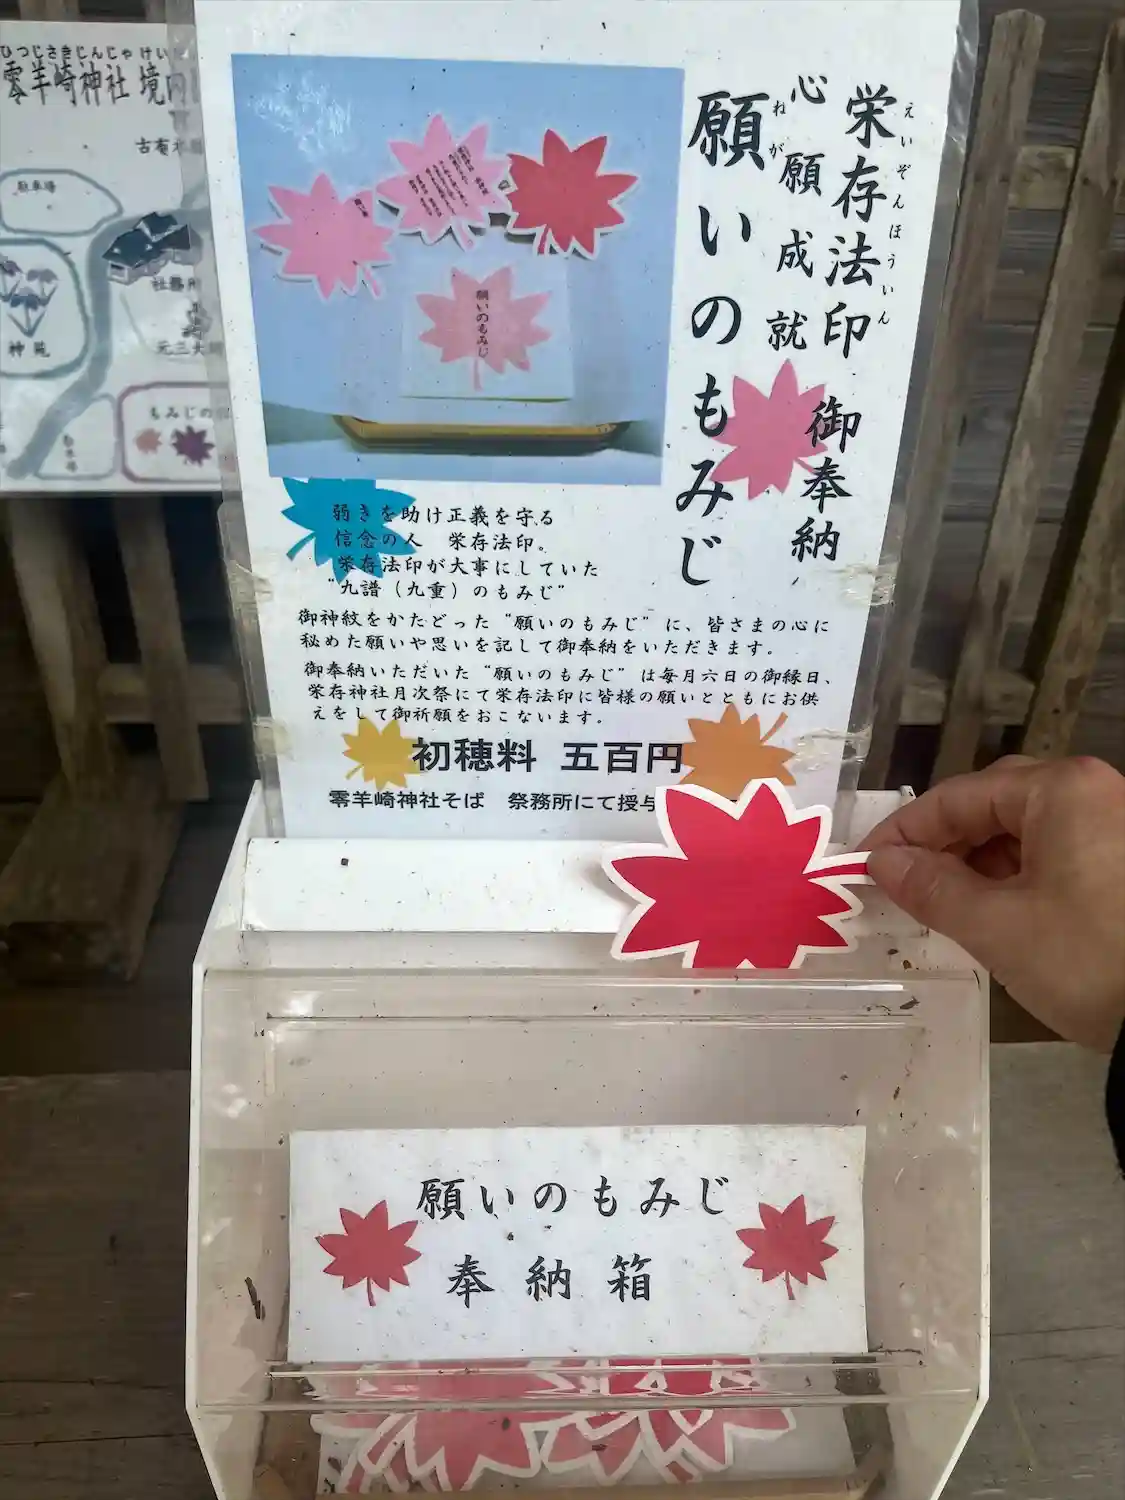 ひつじさきじんじゃけい
零羊崎神社 境内
駐車場
社務所
神苑
もみじの
栄存法印
えいぞんほういん
心願成就
御奉納
願いのもみじ
ねが
願いのもみじ
弱きを助け正義を守る
信念の人 栄存法印。
栄存法印が大事にしていた
"九譜（九重）のもみじ"
御神紋をかたどった"願いのもみじ"に、皆さまの心に
秘めた願いや思いを記して御奉納をいただきます。
御奉納いただいた"願いのもみじ"は毎月六日の御縁日、
栄存神社月次祭にて栄存法印に皆様の願いとともにお供
えをして御祈願をおこないます。
初穂料 五百円
零羊崎神社そば 祭務所にて授与
願いのもみじ
奉納箱